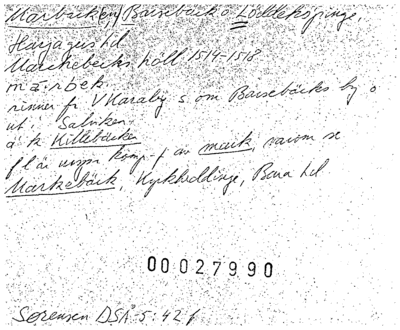 Marbäcken, Barsebäck o Löddeköpinge.
Harjagers hd
Marckebecks håll 1514-1518
mä.rbek.
rinner fr V Karaby s om Barsebäcks by o
ut i Salviken.
ä k Killebäcken
fl ä urspr komp. f av mark, varom se
Markebäck, Kyrkheddinge, Bara hd
00027990
Sørensen DSÅ 5:42 f